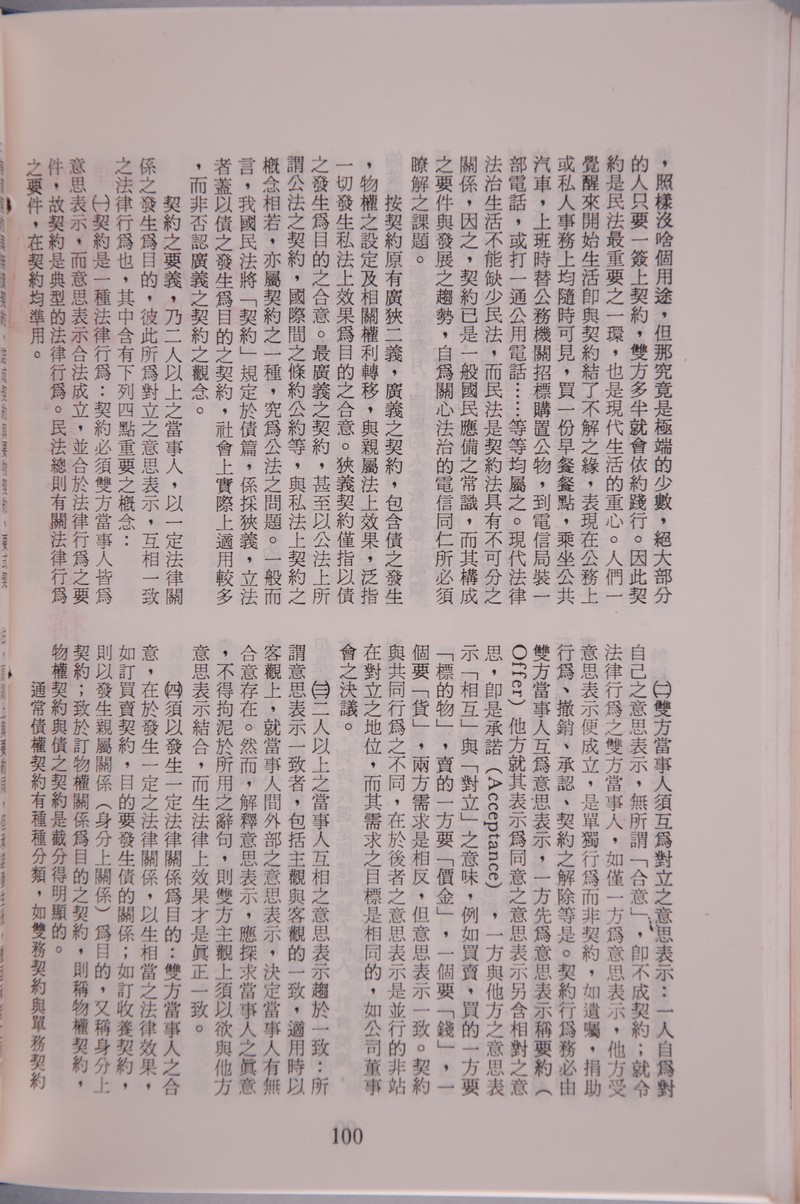 ，照樣沒啥個用途，但那究竟是極端的少數，絕大部分
的人只要一簽上契約，雙方多半就會依約踐行。因此契
約是民法最重要之一環，也是現代生活的重心。人們一
覺醒來開始生活卽與契約結了不解之緣，表現在公務上
或私人事務上均隨時可見，買一份早餐餐點，乘坐公共
汽車，上班時替公務機關招標購置公物，到電信局裝一
部電話，或打一通公用電話……等等均屬之。現代法律
法治生活不能缺少民法，而民法是契約法具有不可分之
關係，因之，契約已是一般國民應備之常識，而其構成
之要件與發展之趨勢，自爲關心法治的電信同仁所必須
瞭解之課題。
按契約原有廣狹二義，廣義之契約，包含債之發生
，物權之設定及相關權利轉移，與親屬法上效果，泛指
一切發生私法上效果爲目的之合意。狹義契約僅指以債
之發生爲目的之合意。最廣義之契約，甚至以公法上所
謂公法之契約，國際間之條約公約等，與私法上契約之
概念相若，亦屬契約之一種，究爲公法之問題。一般而
言，我國民法將「契約」規定於債篇，係採狹義，立法
者蓋以債之發生爲目的之契約，社會上實際上適用較多
，而非否認廣義之契約之觀念。
契約之要義，乃二人以上之當事人，以一定法律關
係之發生爲目的，彼此所爲對立之意思表示，互相一致
之法律行爲也，其中含有下列四點重要之概念：
㈠契約是一種法律行爲：契約必須雙方當事人皆爲
意思表示，而意思表示合法成立，並合於法律行爲之要
件，故契約是典型的法律行爲。民法總則有關法律行爲
之要件，在契約均準用。
㈡雙方當事人須互爲對立之意思表示：一人自爲對
自己之意思表示，無所謂「合意」，卽不成契約；就令
法律行爲之雙方當事人，如僅一方爲意思表示，他方受
意思表示便成立，是單獨行爲而非契約，如遺囑，捐助
行爲、撤銷、承認、契約之解除等是。契約行爲務必由
雙方當事人互爲意思表示，一方先爲意思表示稱要約（
Offer）他方就其表示爲同意之意思表示另含相對之意
思，卽是承諾（Acceptance），一方與他方之意思表
示「相互」與「對立」之意味，例如買賣，買的一方要
「標的物」，賣的一方要「價金」，一個要「錢」，一
個要「貨」，兩方需求是相反，但意思表示一致。契約
與共同行爲之不同，在於後者之意思表示是並行的非站
在對立之地位，而其需求之目標是相同的，如公司董事
會之決議。
㈢二人以上之當事人互相之意思表示趨於一致：所
謂意思表示一致者，包括主觀與客觀的一致，適用時以
客觀上，就當事人間外部之意思表示，決定當事人有無
合意存在。然而，解釋意思表示，應探求當事人之眞意
，不得拘泥於所用之辭句，則雙方主觀上須以欲與他方
意思表示結合，而生法律上效果才是眞正一致。
㈣須以發生一定法律關係爲目的：雙方當事人之合
意，在於發生一定之法律關係，以生相當之法律效果，
如訂買賣契約，目的要發生債的關係；如訂收養契約，
則以發生親屬關係（身分上關係）爲目的，又稱身分上
契約；致於訂物權關係爲目的之契約，則稱物權契約，
物權契約與債之契約是截分得明顯的。
通常債權契約有種種分類，如雙務契約與單務契約
100